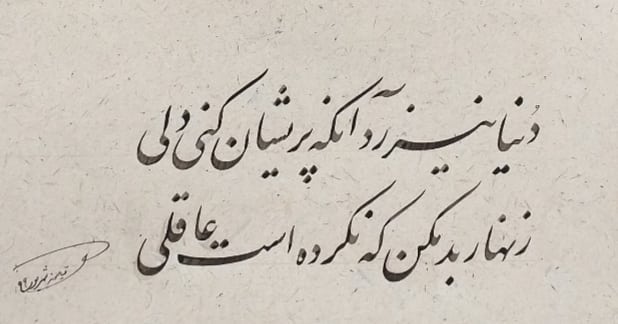 دُنیا نیرزد آنکه پریشان کنی دلی
زنهار بد مکن که نکرده است عاقلی